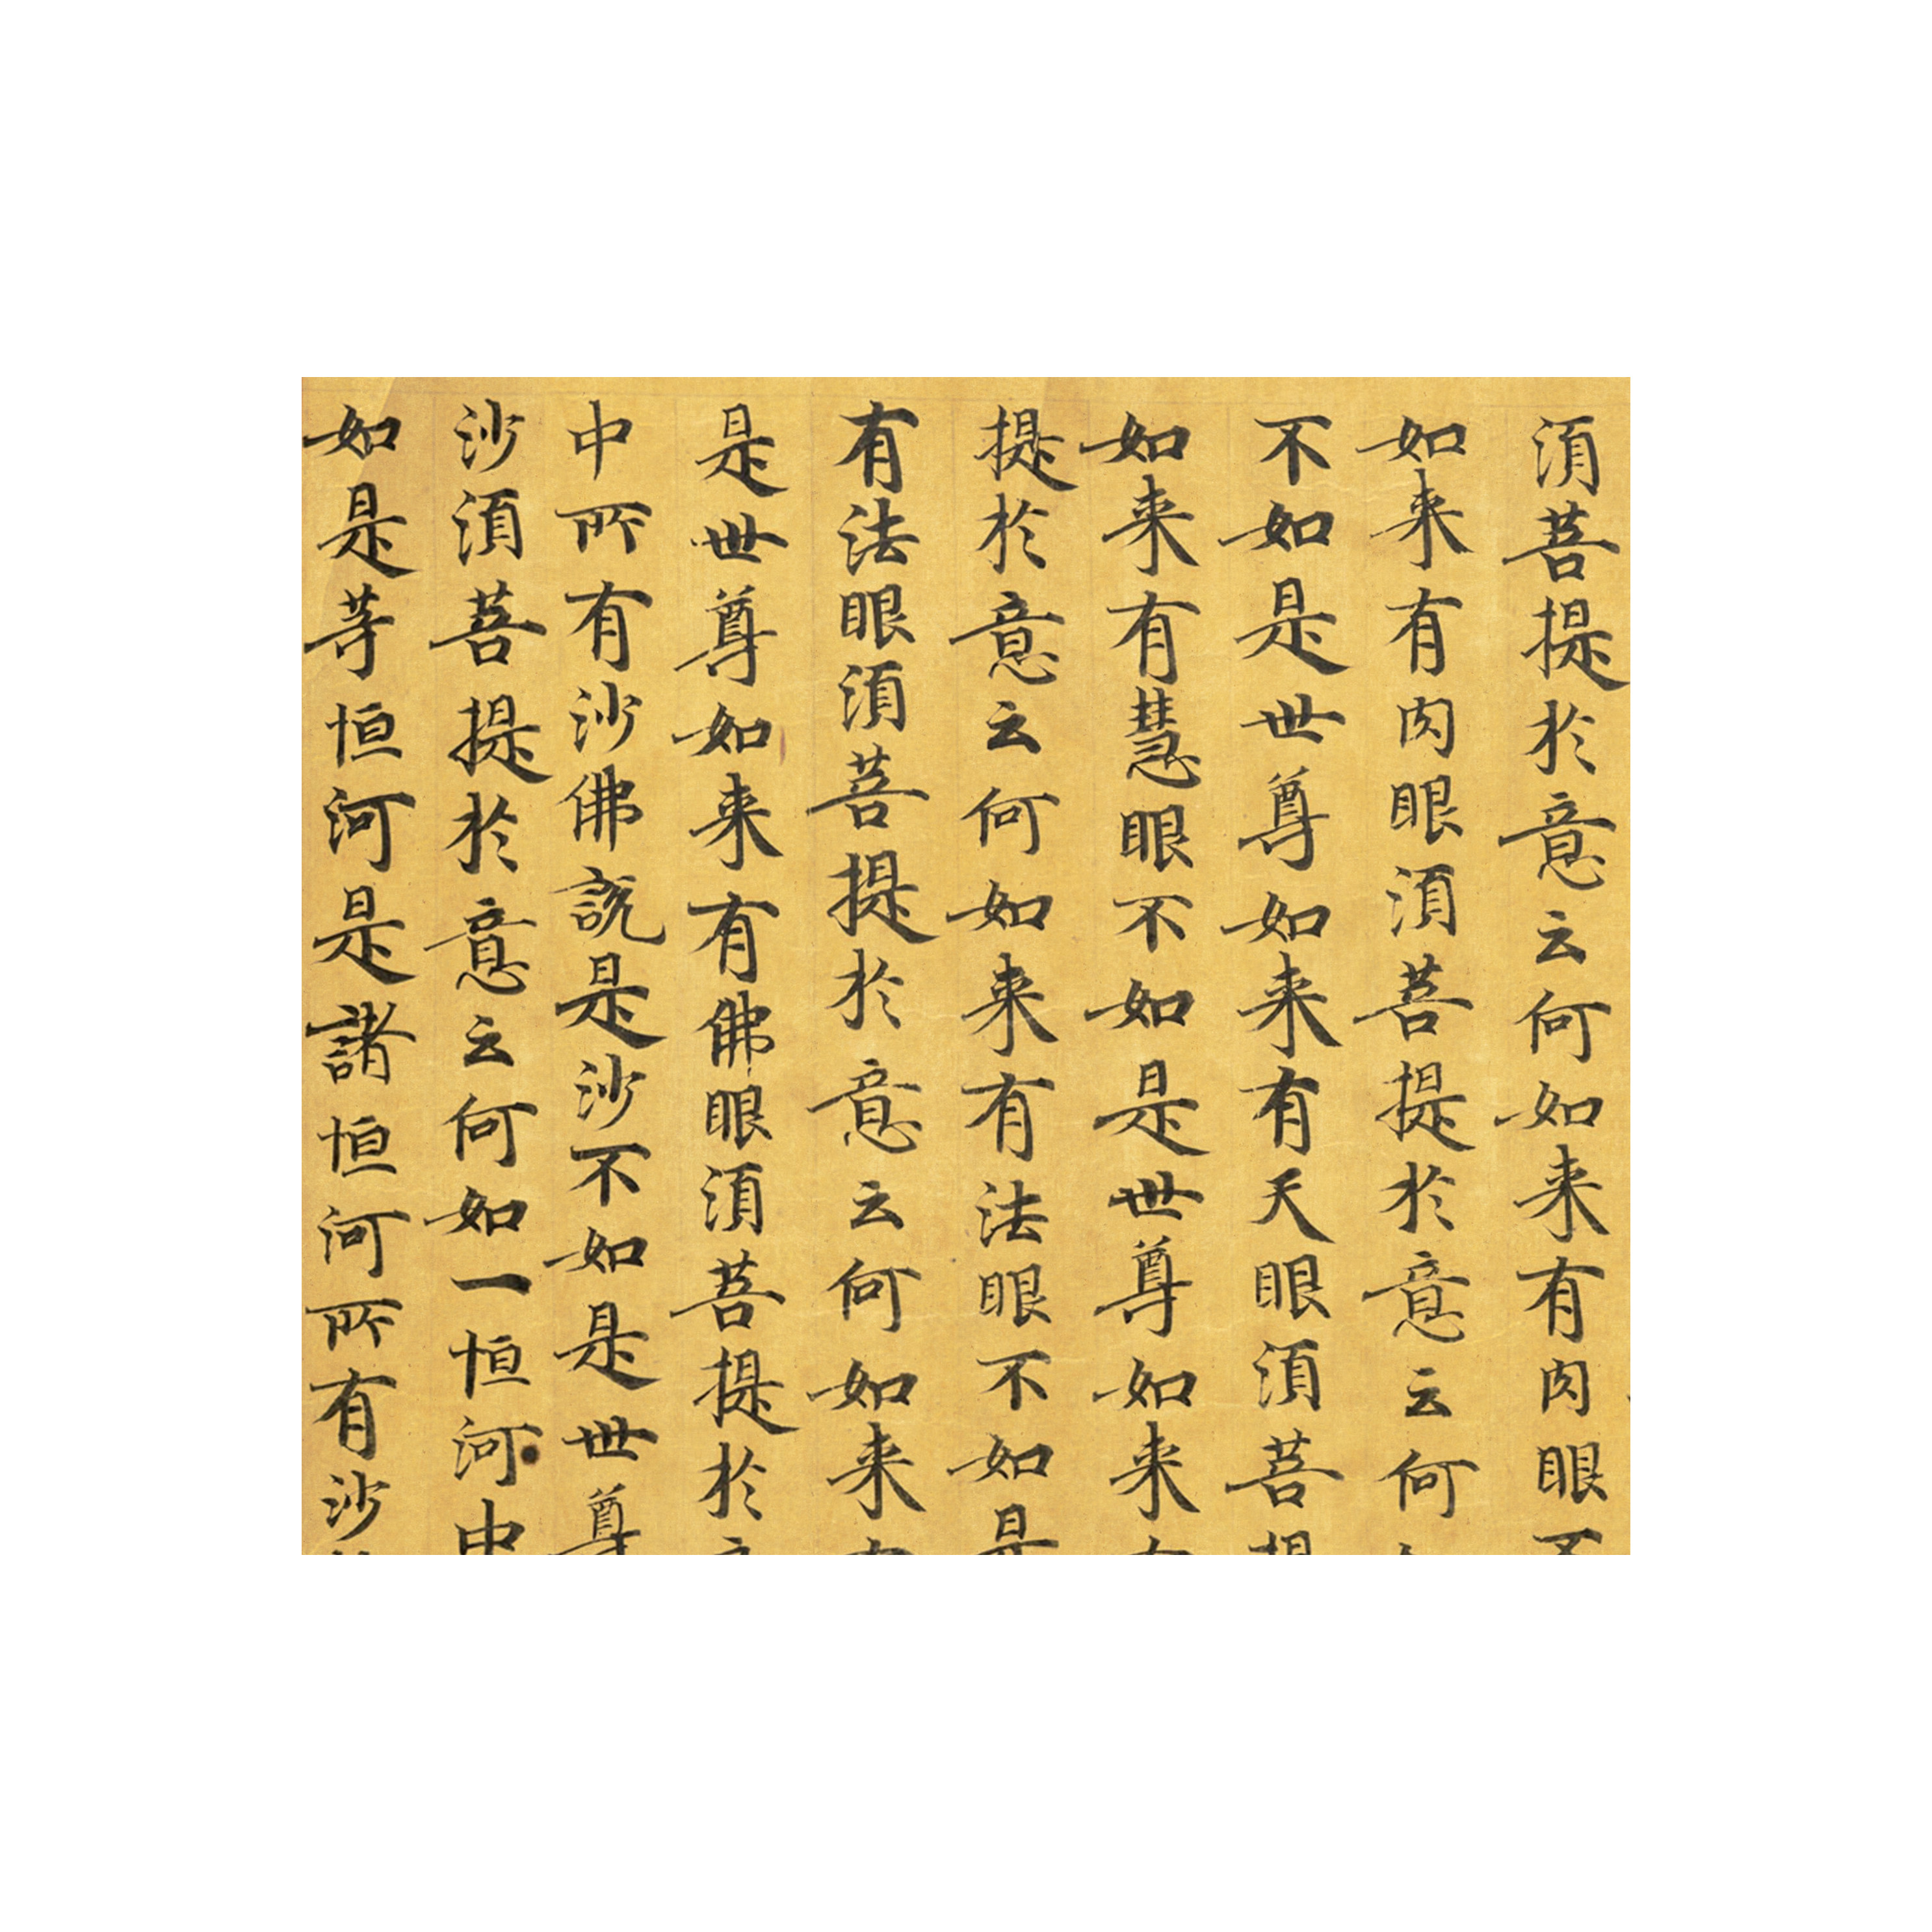 須菩提於意云何如来有肉眼不
如来有肉眼須菩提於意云何
不如是世尊如来有天眼須菩提
如来有慧眼不如是世尊如来有
提於意云何如来有法眼不如是
有法眼須菩提於意云何如来有
是世尊如来有佛眼須菩提於
中所有沙佛説是沙不如是世尊
沙須菩提於意云何如一恒河中
如是等恒河是諸恒河所有沙